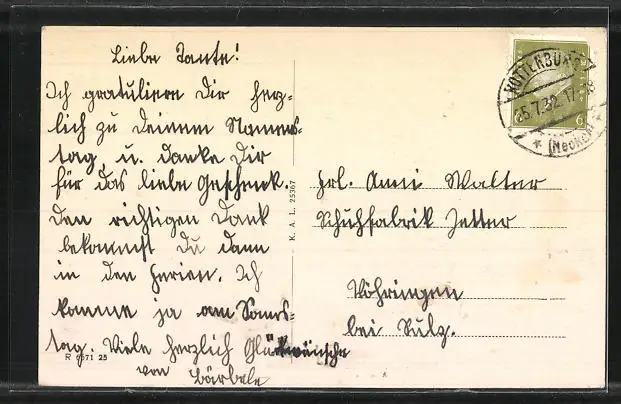 Liebe Tante!
Ich gratuliere Dir herz-
lich zu Deinem Namens-
tag, u. danke Dir
für das liebe Geschenk.
Den richtigen Dank
bekommst Du dann
in den Ferien. Ich
komme ja am Sams-
tag. Viele herzlich Glückwünsche
von Bärbele
R 6671 25
K. A. L. 25367
ROTTENBURG
25.7.32.17-18
* (Neckar) *
6
Frl. Anni Walter
Schuhfabrik Zetter
Vöhringen
bei Sulz.